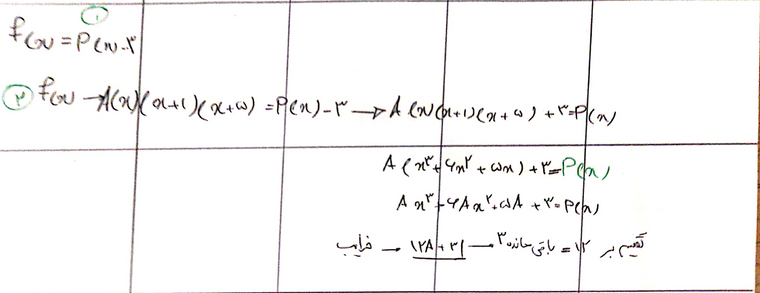 ①
f(x) = P(x) - ۳
② f(x) → A(x)(x+1)(x+۵) = P(x) - ۳ → A(x)(x+1)(x+۵) + ۳ = P(x)
A(x³ + ۶x² + ۵x) + ۳ = P(x)
Ax³ + ۶Ax² + ۵A + ۳ = P(x)
تقسیم بر ۱۲ = باقی مانده ۳ → |۱۲A + ۳| → ضرایب